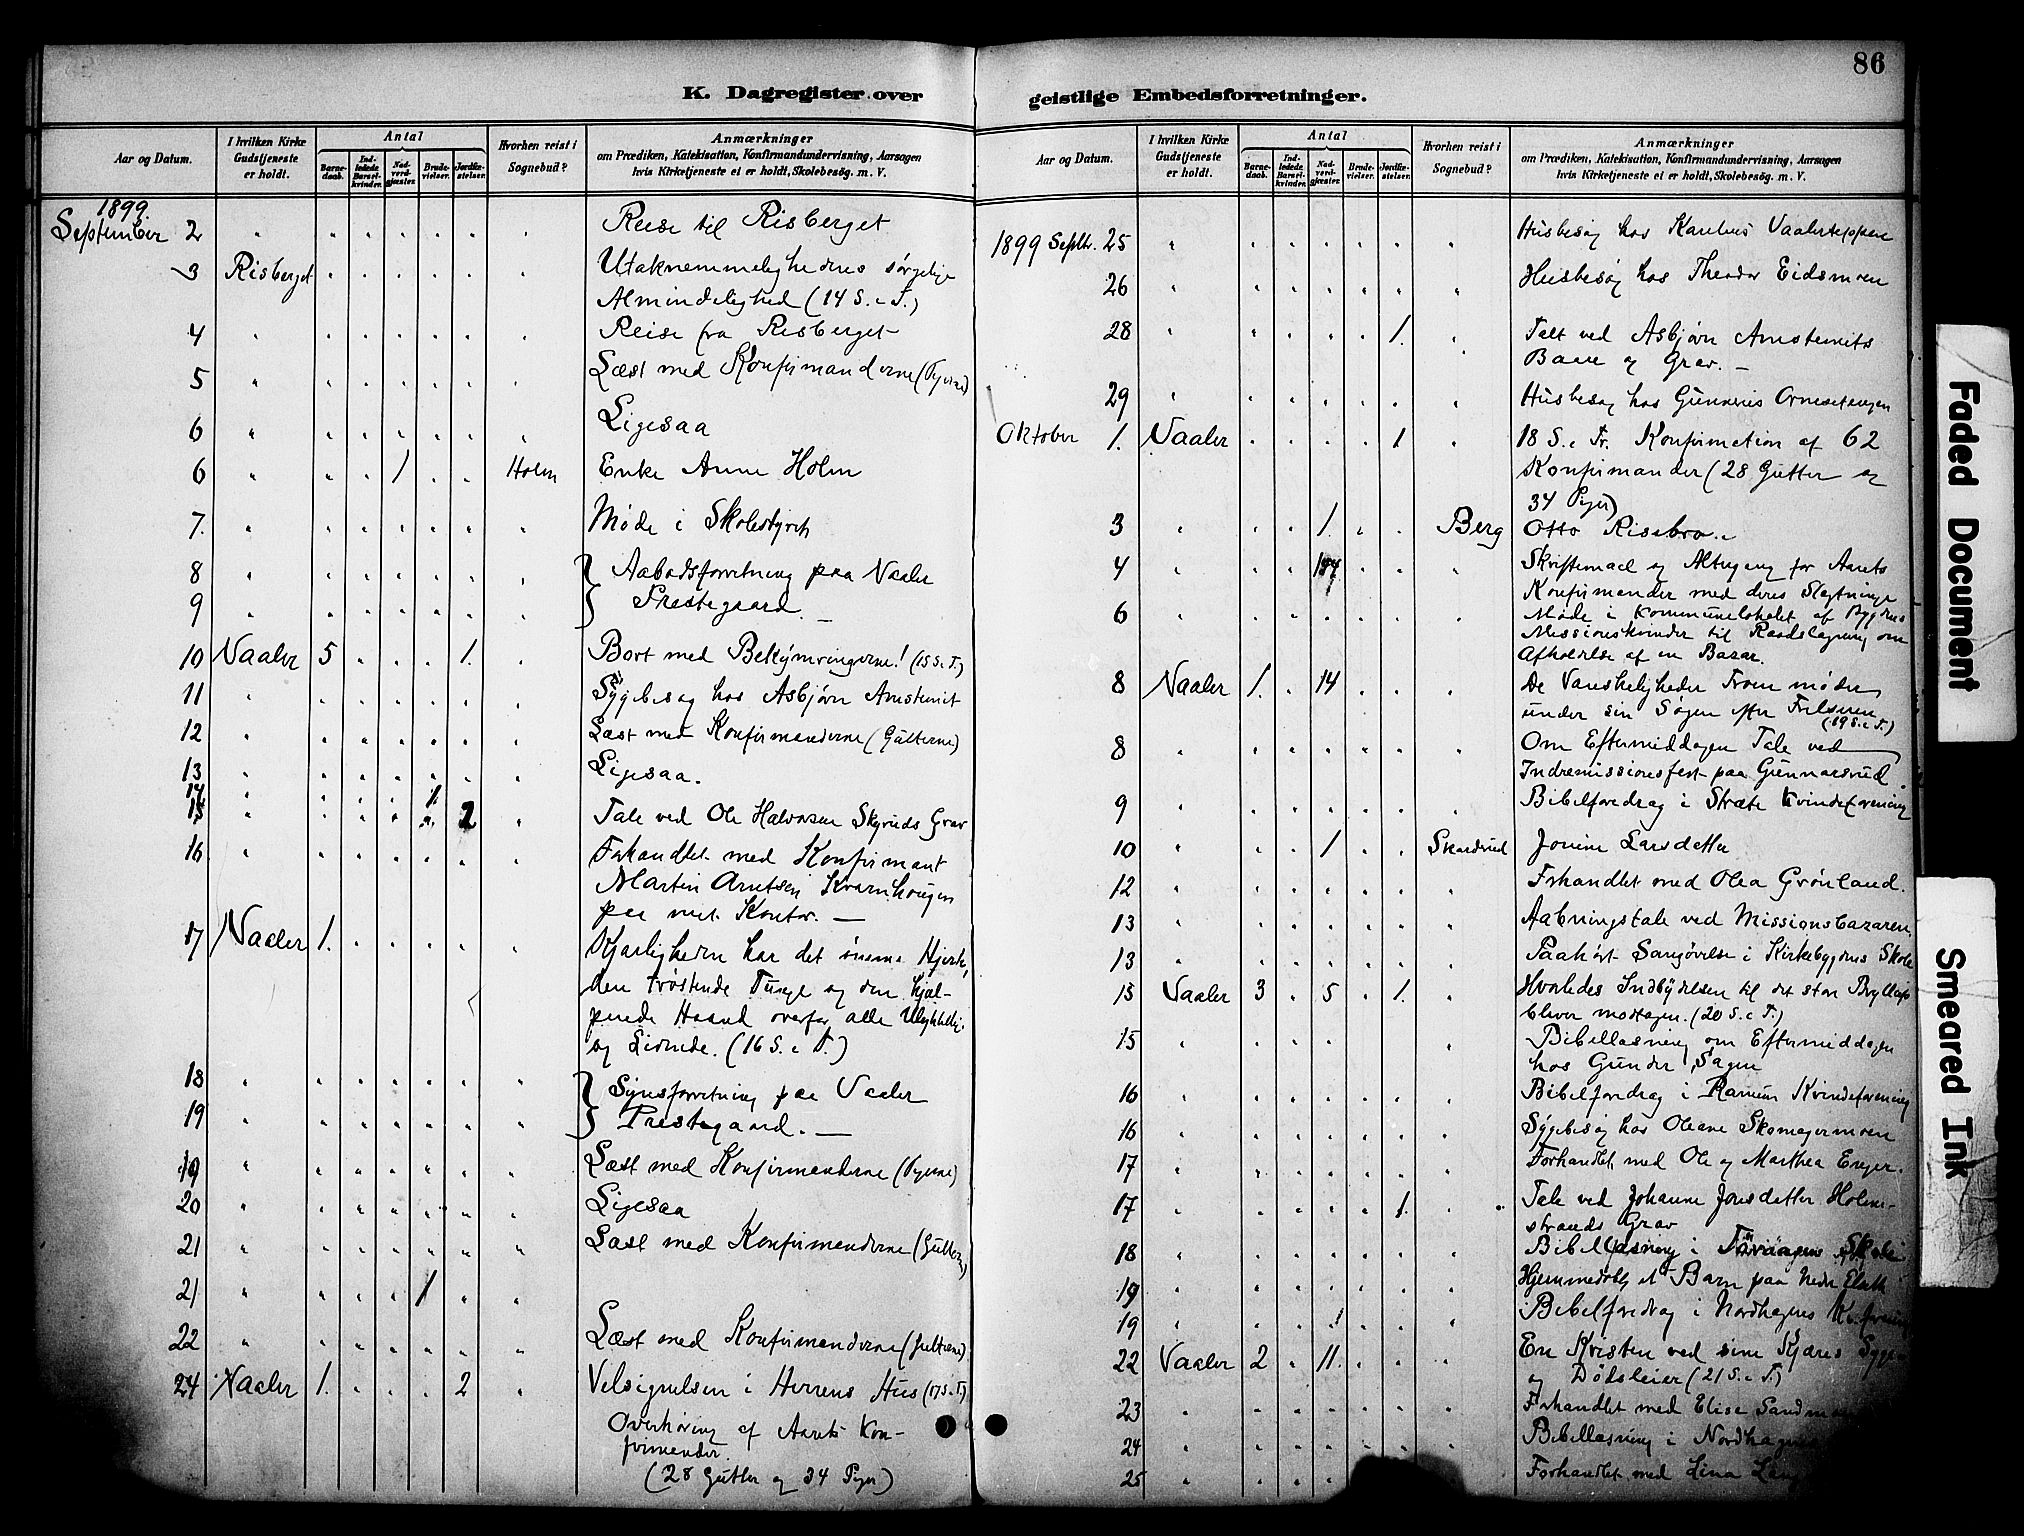 86
K. Dagregister over
Aar og Datum.
I hvilken Kirke Gudstjeneste er holdt.
Antal
Barnedaab.
Indledede Barselkvinder.
Nadverdgjæster.
Brudevielser.
Jordfæstelser.
Hvorhen reist i Sognebud?
Anmærkninger
om Prædiken, Katekisation, Konfirmandundervisning, Aarsagen
hvis Kirketjeneste ei er holdt, Skolebesøg. m. V.
1899
September 2 Reise til Risberget
3 Risberget Utaknemmelighedens sørgelige
Almindelighed (14 S. e T.)
4 Reise fra Risberget
5 Læst med Konfirmanderne (Pigerne)
6 Ligesaa
6 1 Holm Enke Anne Holm
7. Møde i Skolestyret
8 Aabodsforretning paa Vaaler
9 Prestegaard.
10 Vaaler 5 1. Bort med Bekymringerne! (15 S. e T.)
11 Sygebesøg hos Asbjørn Arnstenit
12 Læst med Konfirmanderne (Gutterne)
13 Ligesaa.
14 1.
15 2 Tale ved Ole Halvorsen Skyruds Grav
16 Forhandlet med Konfirmant
Martin Arntsen Kvarnhougen
paa mit Kontor.
17 Vaaler 1. Kjærligheden har det ømme Hjerte,
den trøstende Tunge og den hjæl-
pende Haand overfor alle Ulykkelig.
og Lidende. (16 S. e T.)
18 Synsforretning paa Vaaler
19 Prestegaard.
19 Læst med Konfirmanderne (Pigerne)
20 Ligesaa
21 Læst med Konfirmanderne (Gutterne)
21 1
22 Læst med Konfirmanderne (Gutterne)
24 Vaaler 1. 2 Velsignelsen i Herrens Hus (17 S. e T.)
Overhøring af Aarets Kon-
firmander.
(28 Gutter og 34 Piger)
geistlige Embedsforretninger.
Aar og Datum.
I hvilken Kirke Gudstjeneste er holdt.
Antal
Barnedaab.
Indledede Barselkvinder.
Nadverdgjæster.
Brudevielser.
Jordfæstelser.
Hvorhen reist i Sognebud?
Anmærkninger
om Prædiken, Katekisation, Konfirmandundervisning, Aarsagen
hvis Kirketjeneste ei er holdt, Skolebesøg. m. V.
1899 Septbr. 25 Husbesøg hos Vaalerteppen
26 Husbesøg hos Theodor Eidsmoen
28 1. Talt ved Asbjørn Arnstenits
Baare og Grav.
29 Husbesøg hos Gunnerius
Oktober 1. Vaaler 1 18 S. e Tr. Konfirmation af 62
Konfirmander (28 Gutter og
34 Piger)
3 1. Berg Otto Risebro.
4 Skriftemaal og Altergang for Aarets
Konfirmander med deres Slægtninge
6 Møde i Kommunelokalet af Bygdens
Missionskvinder til Raadslagning om
Afholdelse af en Bazar.
8 Vaaler 1. 14 De Vanskeligheder Troen møder
under sin Søgen efter Frelseren
(19 S. e T.)
8 Om Eftermiddagen Tale ved
Indremissionsfest paa Gunnarsrud.
9 Bibelforedrag i Stræte Kvindeforening
10 1 Skardsrud Jonine Larsdatter
12 Forhandlet med Olea Grønland.
13 Aabningstale ved Missionsbazaren.
13 Paahørt Sangøvelse i Kirkebygdens Skole
15 Vaaler 3 5 1. Hvorledes Indbydelsen til det store Bryllup
bliver modtagen. (20 S. e T.)
15 Bibellæsning om Eftermiddagen
hos Gunder Sagen
16 Bibelforedrag i Kvindeforening
16 Sygebesøg hos Oleane Skomagermoen
17 Forhandlet med Ole og Marthea Enger.
17 1. Tale ved Johanne Jonsdatter Holm-
strands Grav
18 Bibellæsning i Skole
19 Hjemmedøbt et Barn paa nedre
19 Bibelforedrag i Nordhagens
22 Vaaler 2 11. En Kristen ved sine Kjæres Syge
og Dødsleier (21 S. e T.)
23 Forhandlet med Elise
24 Bibellæsning i
25 Forhandlet med Lina
Faded Document
Smeared Ink